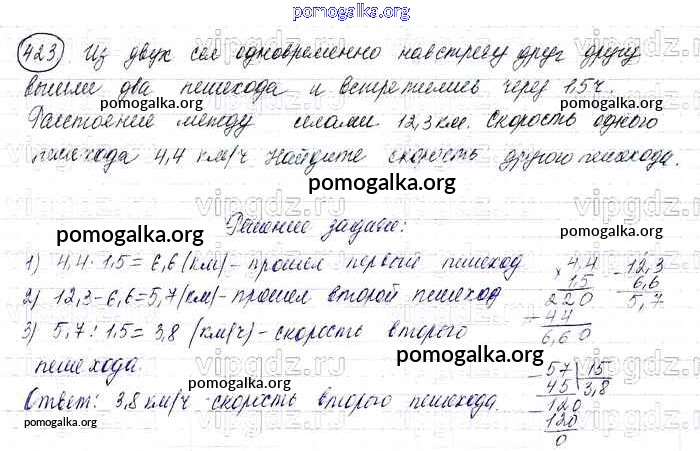 pomogalka.org
423) Из двух сел одновременно навстречу друг другу
вышли два пешехода и встретились через 1,5 ч.
pomogalka.org pomogalka.org
Расстояние между селами 12,3 км. Скорость одного
пешехода 4,4 км/ч. Найдите скорость другого пешехода.
pomogalka.org
Решение задачи:
pomogalka.org
1) 4,4 · 1,5 = 6,6 (км) - прошел первый пешеход
2) 12,3 - 6,6 = 5,7 (км) - прошел второй пешеход
3) 5,7 : 1,5 = 3,8 (км/ч) - скорость второго
пешехода.
pomogalka.org
pomogalka.org
Ответ: 3,8 км/ч - скорость второго пешехода.
pomogalka.org pomogalka.org
× 4,4
1,5
220
+ 44
6,60
- 12,3
6,6
5,7
- 57 | 15
45 | 3,8
- 120
120
0
vipgdz.ru